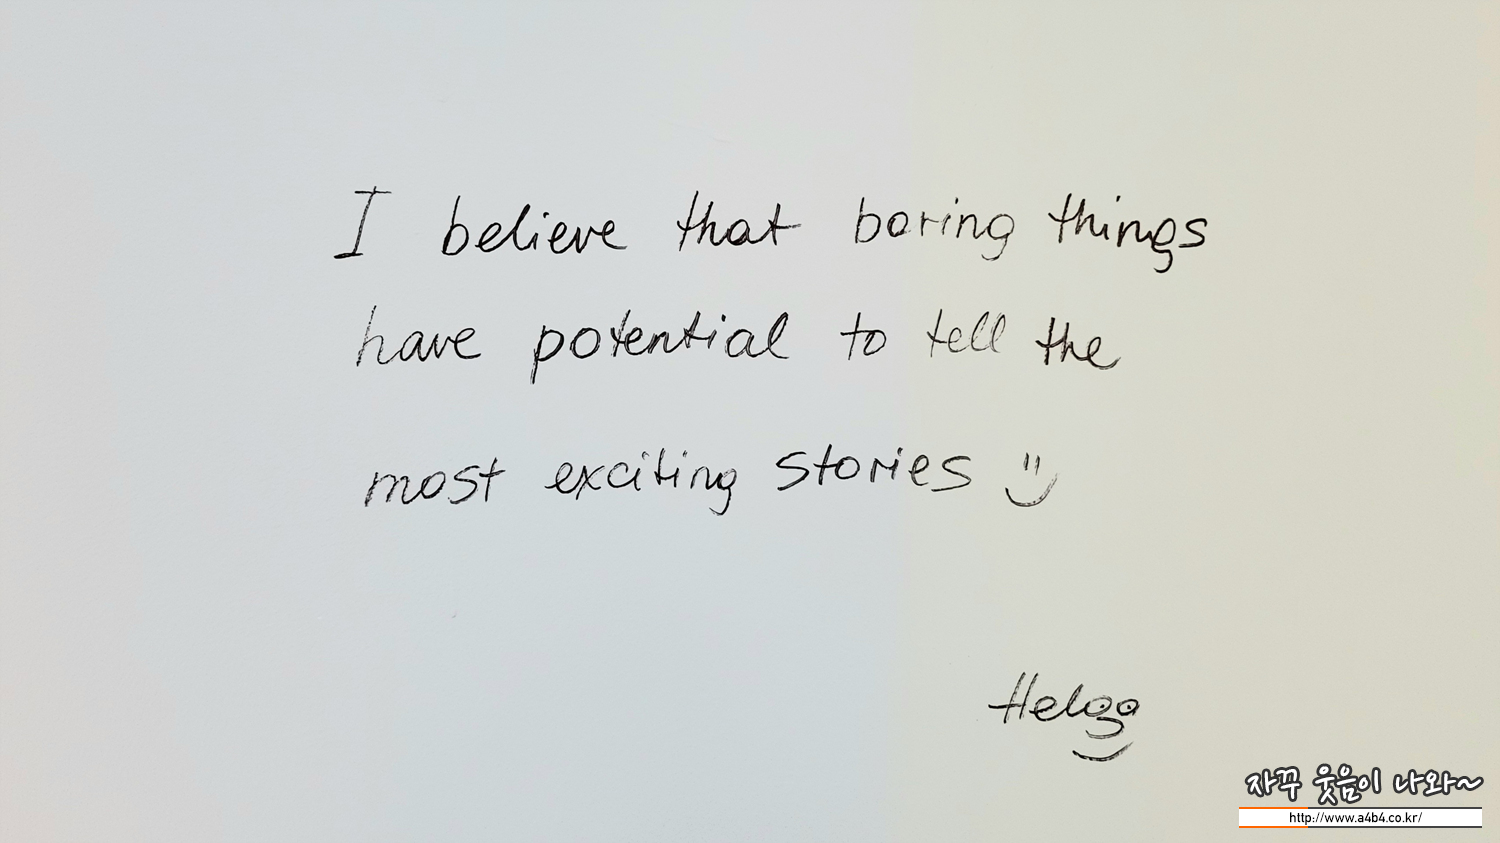 I believe that boring things
have potential to tell the
most exciting stories
Helga
자꾸 웃음이 나와~
http://www.a4b4.co.kr/